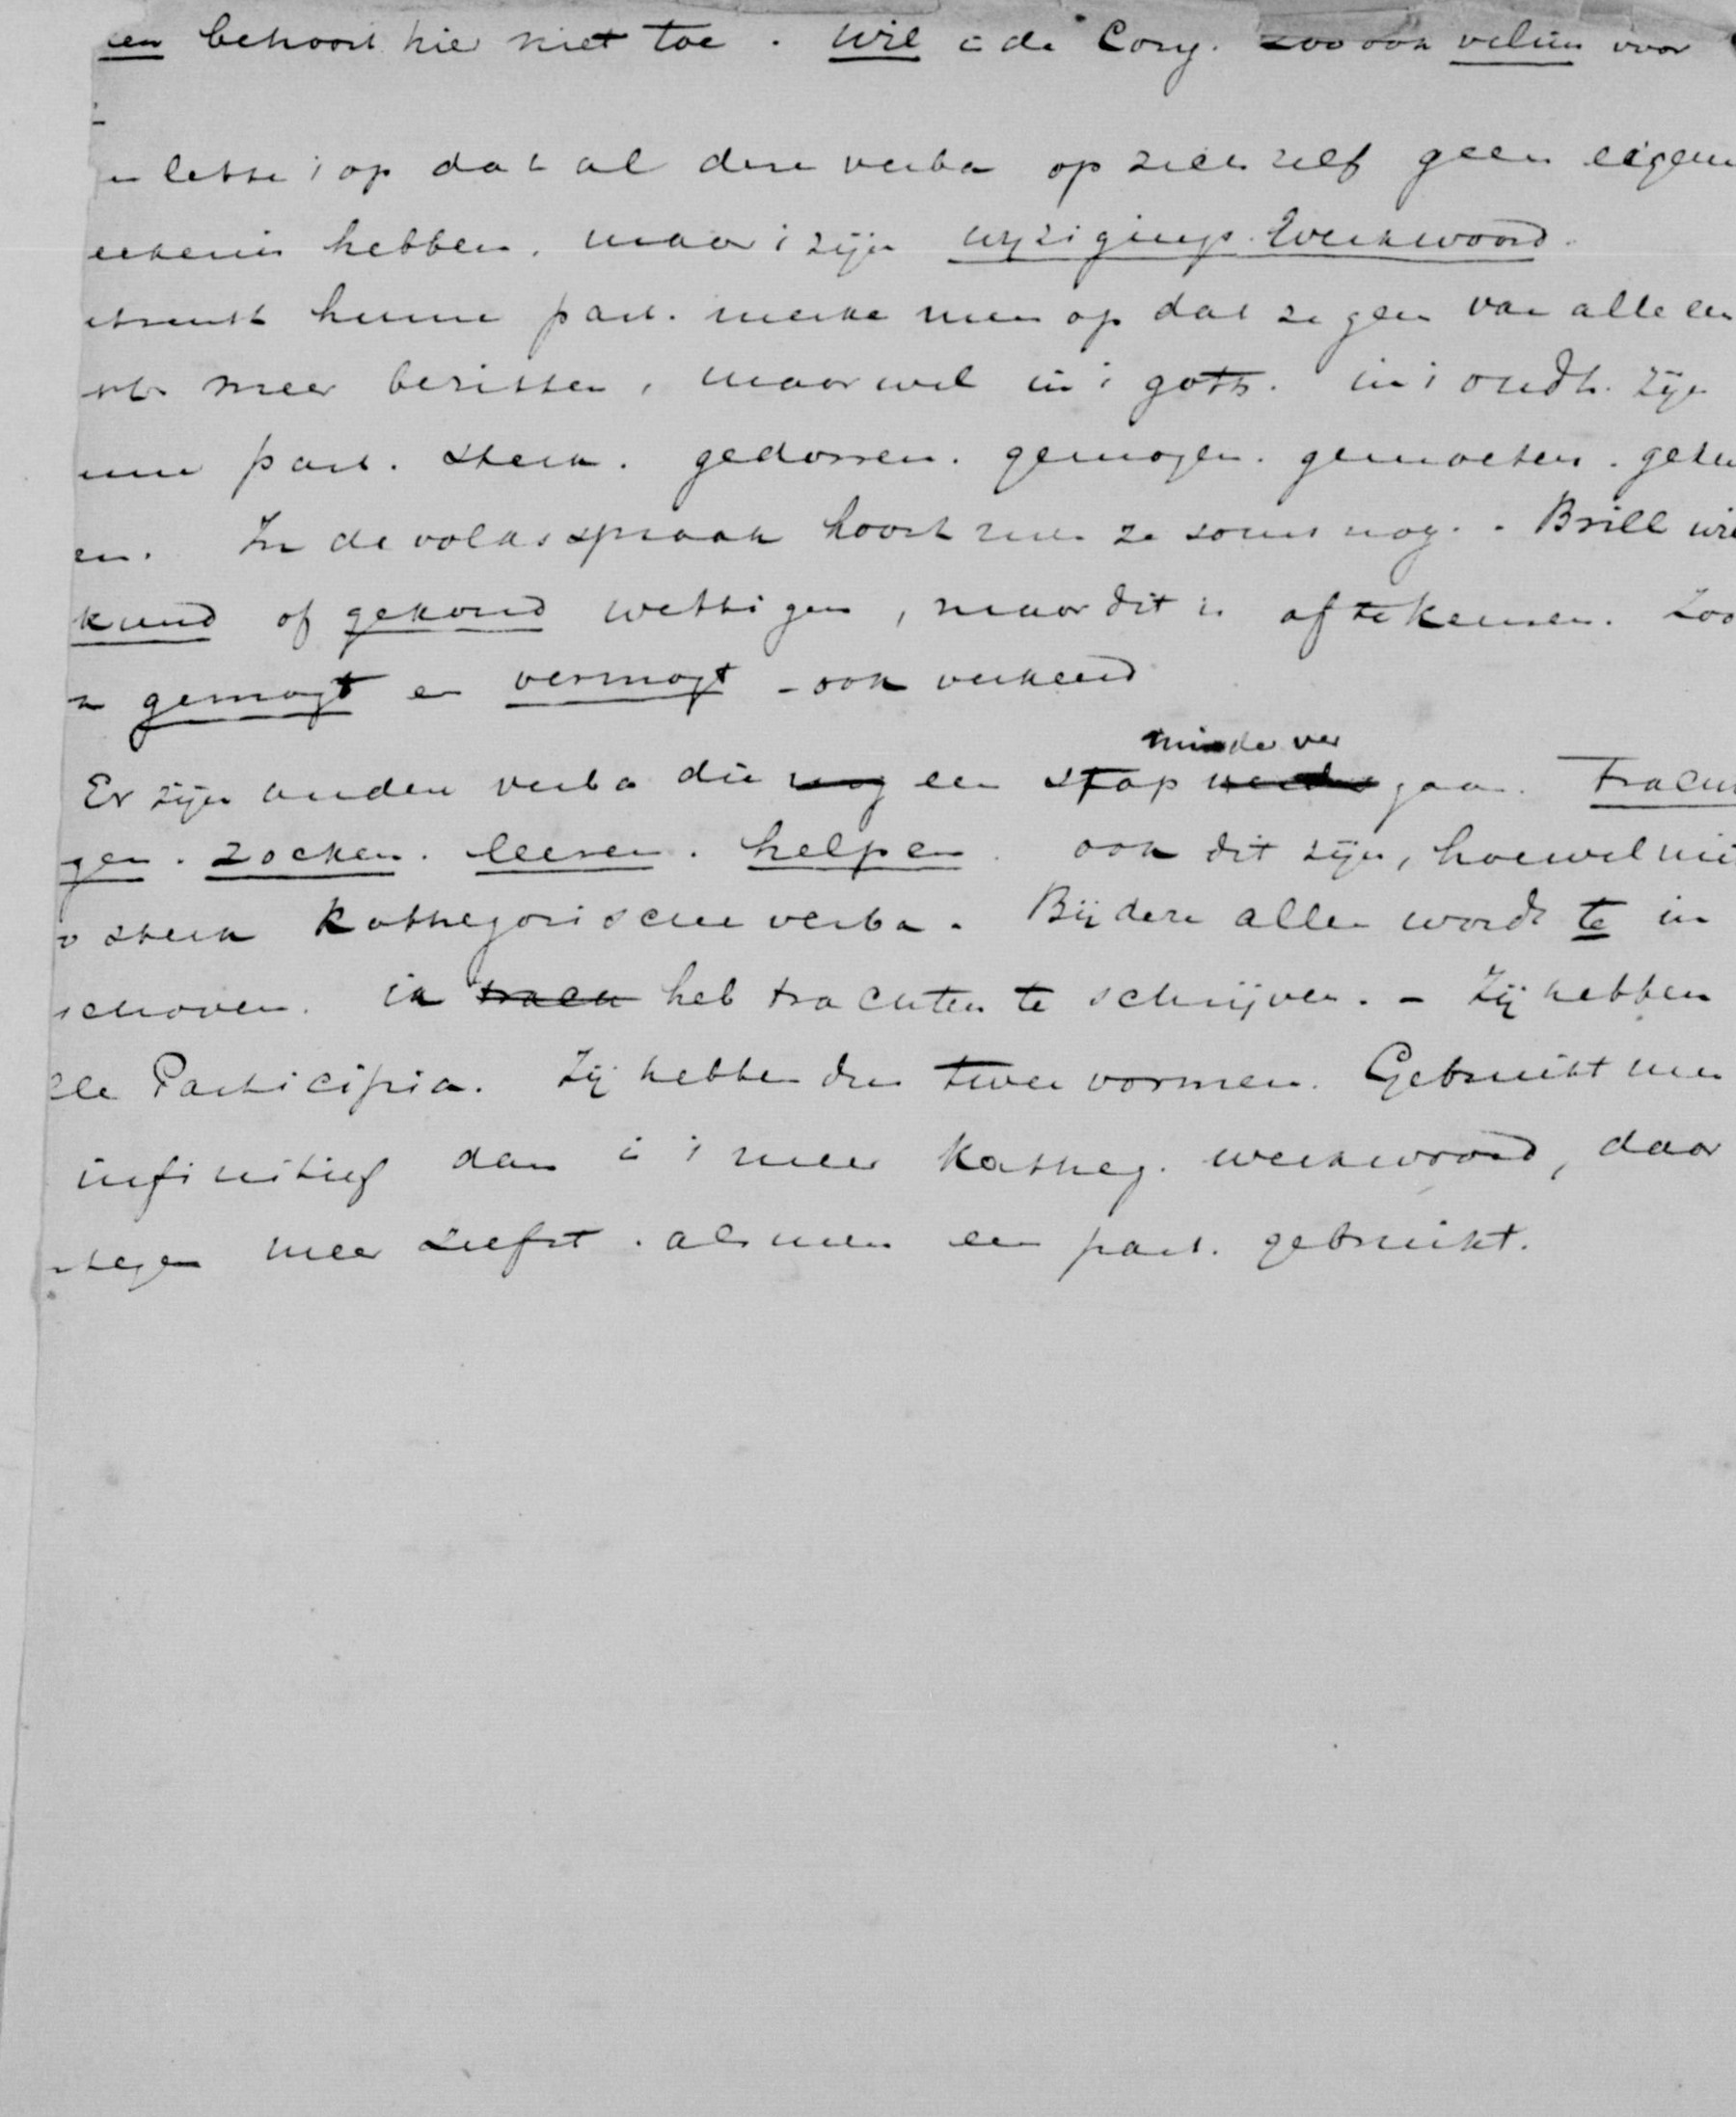 en behoort hier niet toe. Wil i de Conj. zoo ook velim voor
n lette i op dat al deze verba op zich zelf geen eigen
eekenis hebben, maar i zijn wyzigings-werkwoord.
trent hunne part. merke men op dat ze geen van alle een
meer bezitten, maar wel in i goth. in i oudh. zijn
nne part. sterk. gedorren. gemogen. gemoeten.
en. In de volksspraak hoort men ze soms nog. - Brill wil
kund of gekond wettigen, maar dit is af te keuren. Zoo
n gemogt en vermogt - ook verkeerd
minder ver
Er zijn andere verba die nog een stap verder gaan. Trach
gen. zoeken. leeren. helpen. ook dit zijn, hoewel nie
o sterk kathegorische verba. Bij deze allen wordt te in
schoven. ik trach heb trachten te schrijven. - Zij hebben
lle Participia. Zij hebben dus twee vormen. Gebruikt men
infinitief dan i i meer katheg. werkwoord, daar
ntegen meer zelfst. als men een part. gebruikt.